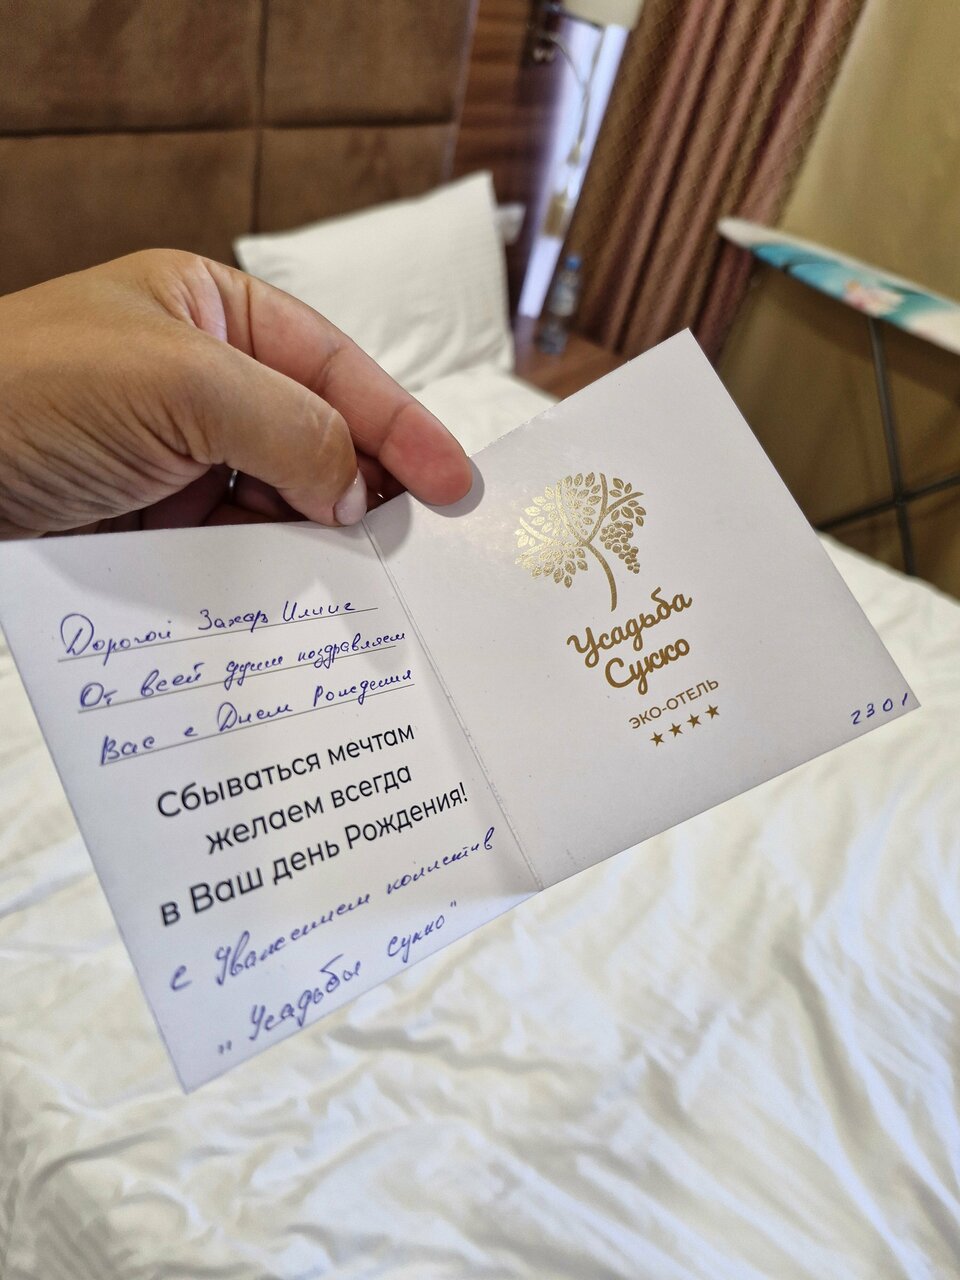 Дорогой Захар Илиис
От всей души поздравляем
Вас с Днем Рождения
Сбываться мечтам
желаем всегда
в Ваш день Рождения!
с Уважением коллектив
„Усадьбы Сукко"
Усадьба
Сукко
ЭКО-ОТЕЛЬ
2301